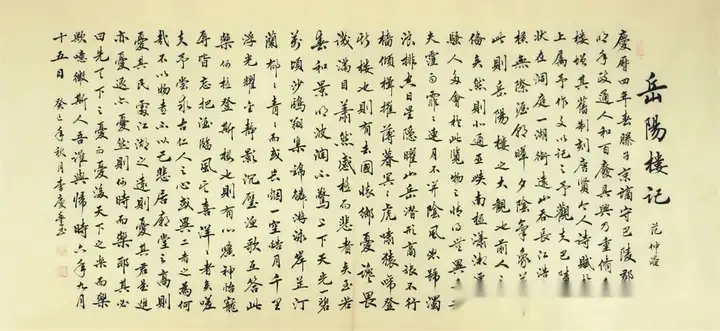 岳陽樓记 范仲淹
慶曆四年春滕子京謫守巴陵郡
明年政通人和百廢具興乃重脩
樓增其舊制刻唐賢今人诗賦於
上属予作文以记之予觀夫巴陵
状在洞庭一湖銜遠山吞長江浩
横無際涯朝暉夕陰氣象萬
此則岳陽樓之大觀也前人之
備矣然則北通巫峡南極瀟湘
騷人多會於此覽物之情得無異
夫霪雨霏霏連月不开陰風怒號濁
浪排空日星隱曜山岳潛形商旅不行
檣傾楫摧薄暮冥冥虎嘯猿啼登
斯樓也則有去國懷鄉憂讒畏
譏滿目蕭然感極而悲者矣至若
春和景明波瀾不驚上下天光一碧
萬頃沙鷗翔集錦鳞游泳岸芷汀
蘭郁郁青青而或长烟一空皓月千里
浮光耀金静影沉璧漁歌互答此
樂何極登斯樓也則有心曠神怡寵
辱皆忘把酒臨風其喜洋洋者矣嗟
夫予嘗求古仁人之心或異二者之為何
哉不以物喜不以己悲居廟堂之高則
憂其民處江湖之遠則憂其君是進
亦憂退亦憂然則何時而樂耶其必
曰先天下之憂而憂後天下之樂而樂
歟噫微斯人吾誰與歸時六年九月
十五日 癸巳年秋月李慶